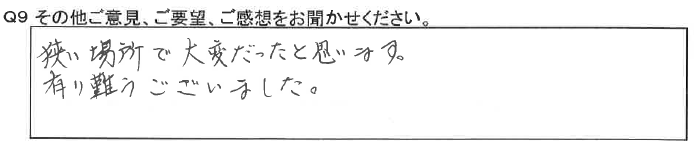 Q9 その他ご意見、ご要望、ご感想をお聞かせください。
狭い場所で大変だったと思います。
有り難うございました。